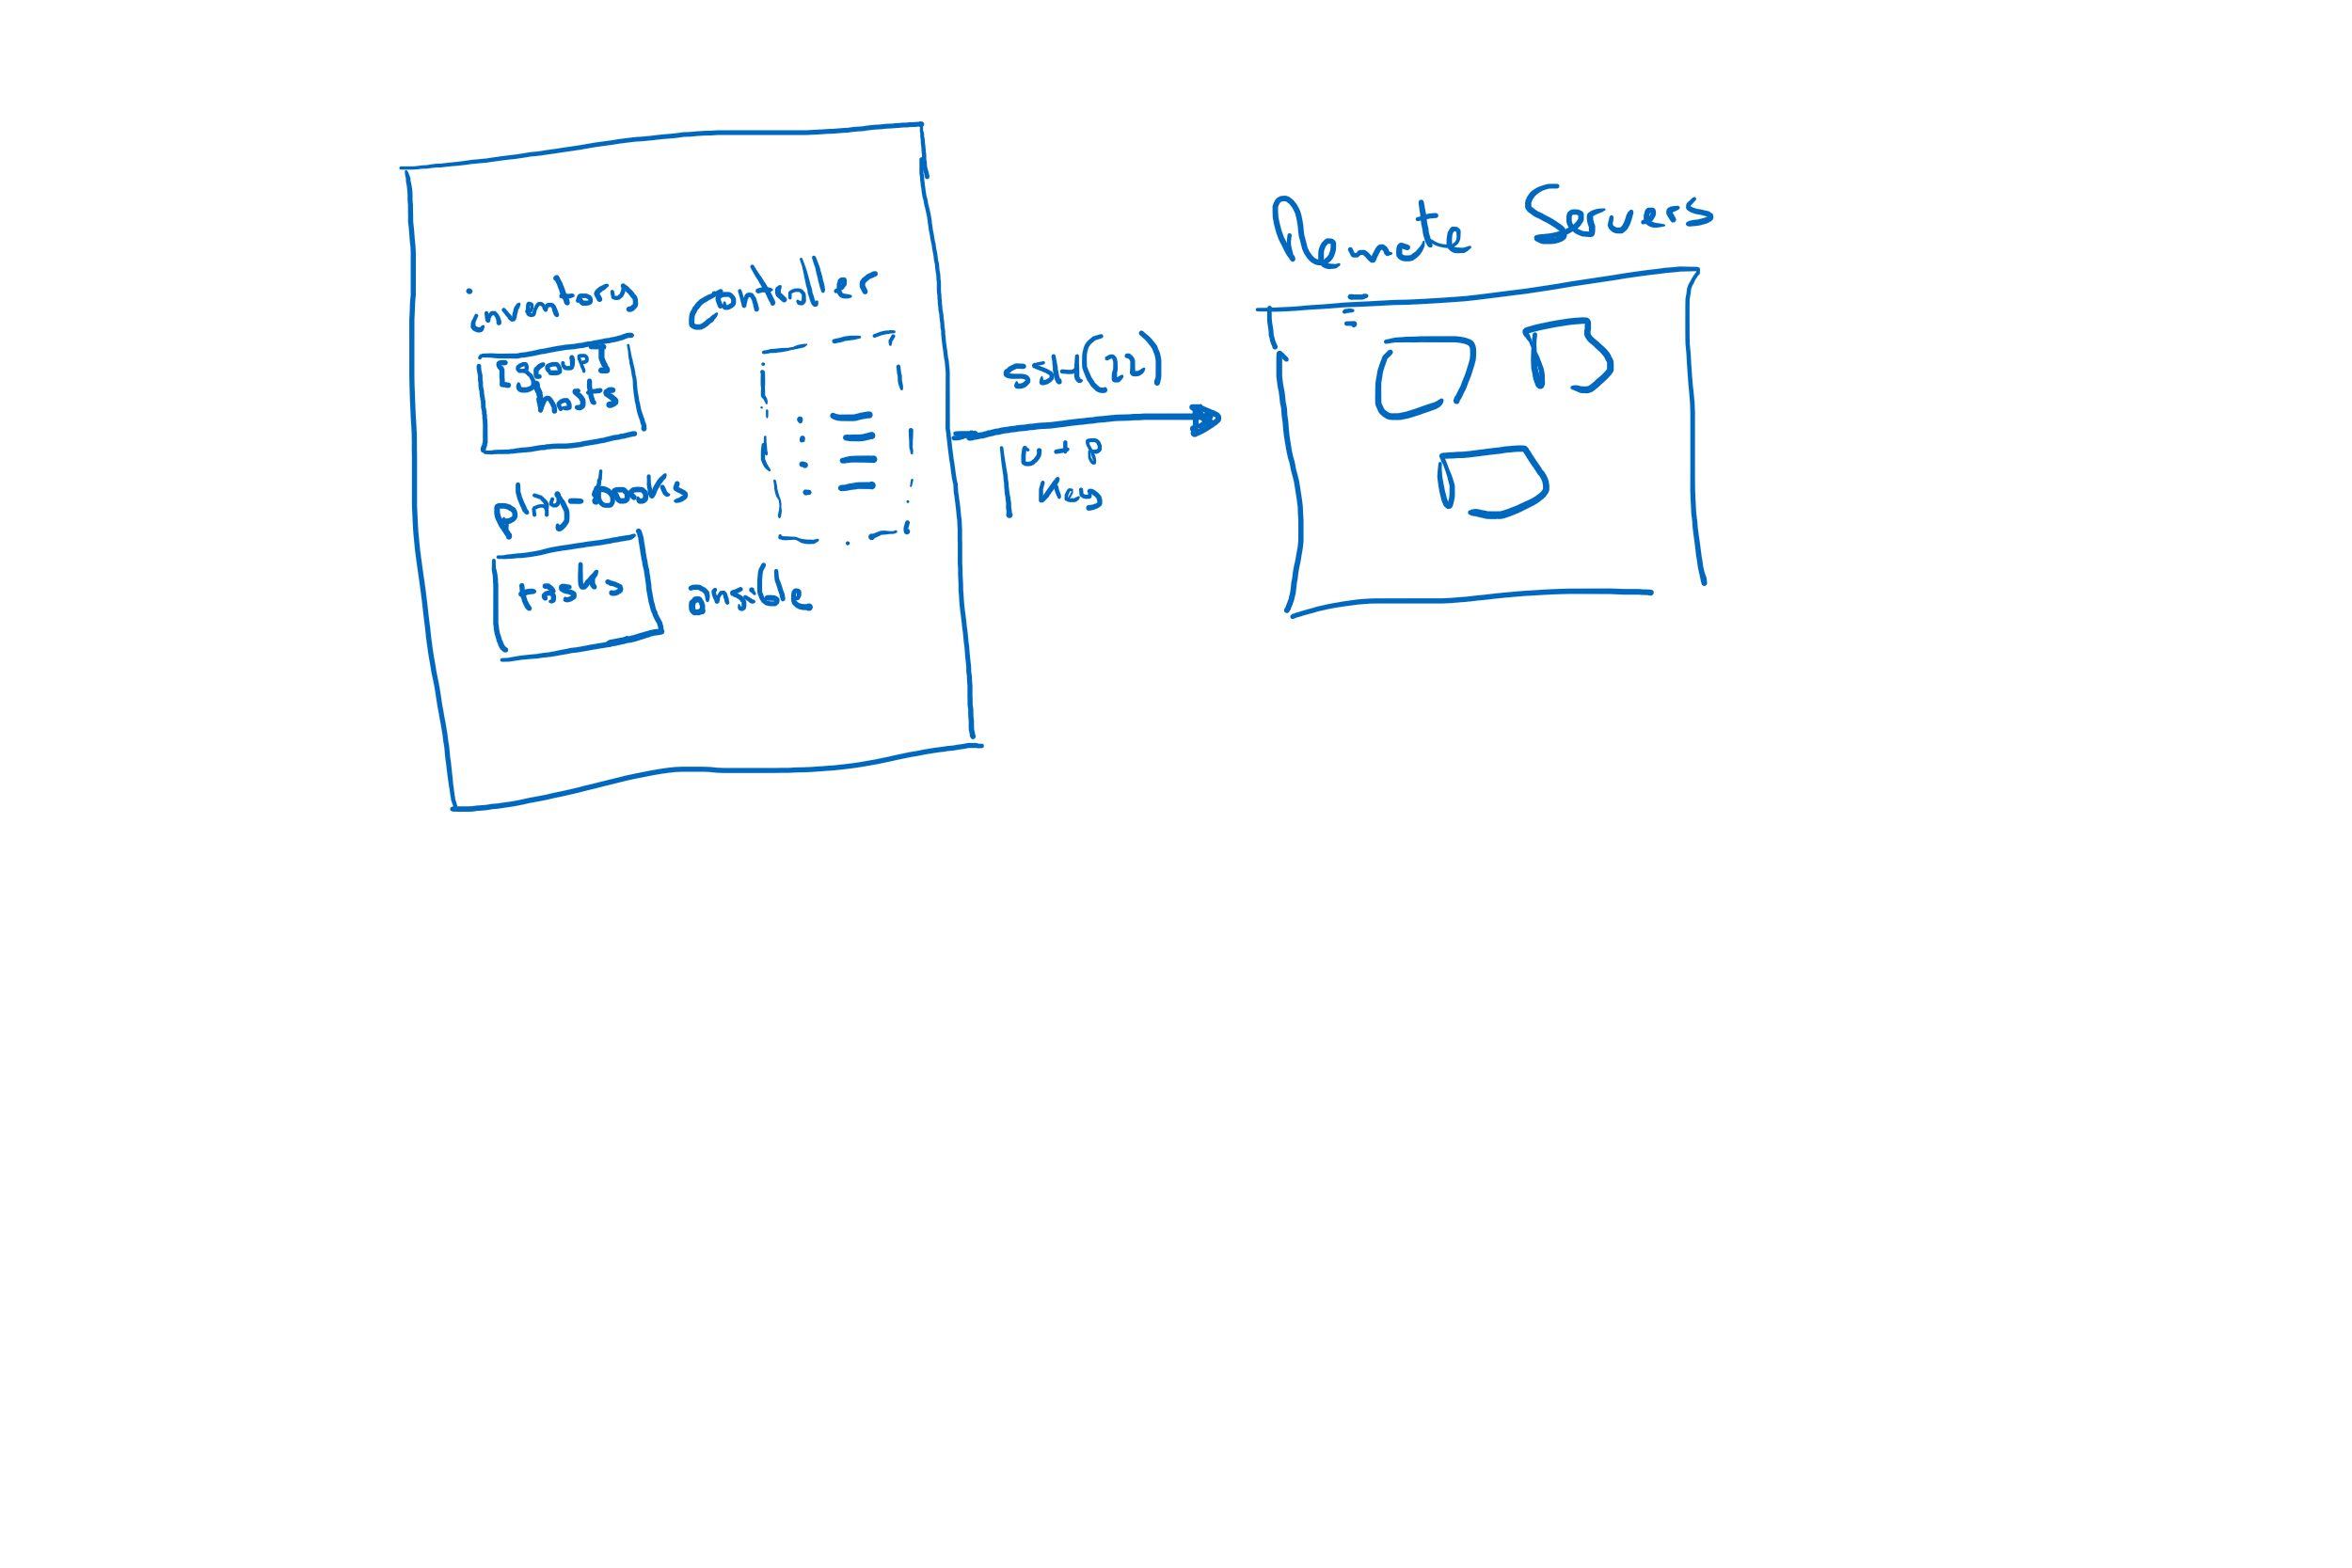 inventory
[group]
hosts
playbooks
tasks
controller
ansible
ssh(22)
Remote Servers